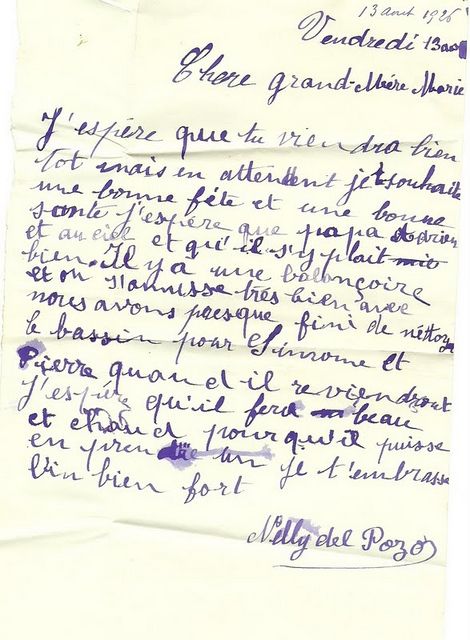 13 aout 1926
Vendredi 13 ao
Chere grand-Mère Marie
J'espère que tu viendra bien
tot mais en attendent je te souhaite
une bonne féte et une bonne
sante j'espère que papa
et au ciel et qu'il s'y plait
bien. Il y a une balançoire
et on s'amusse très bien avec
nous avons presque fini de néttoye
le bassin pour Simrome et
Pierre quand il reviendront
J'espère qu'il fera beau
et chaud pour qu'il puisse
en pren un je t'embrasse
bin bien fort
Nelly del Pozo